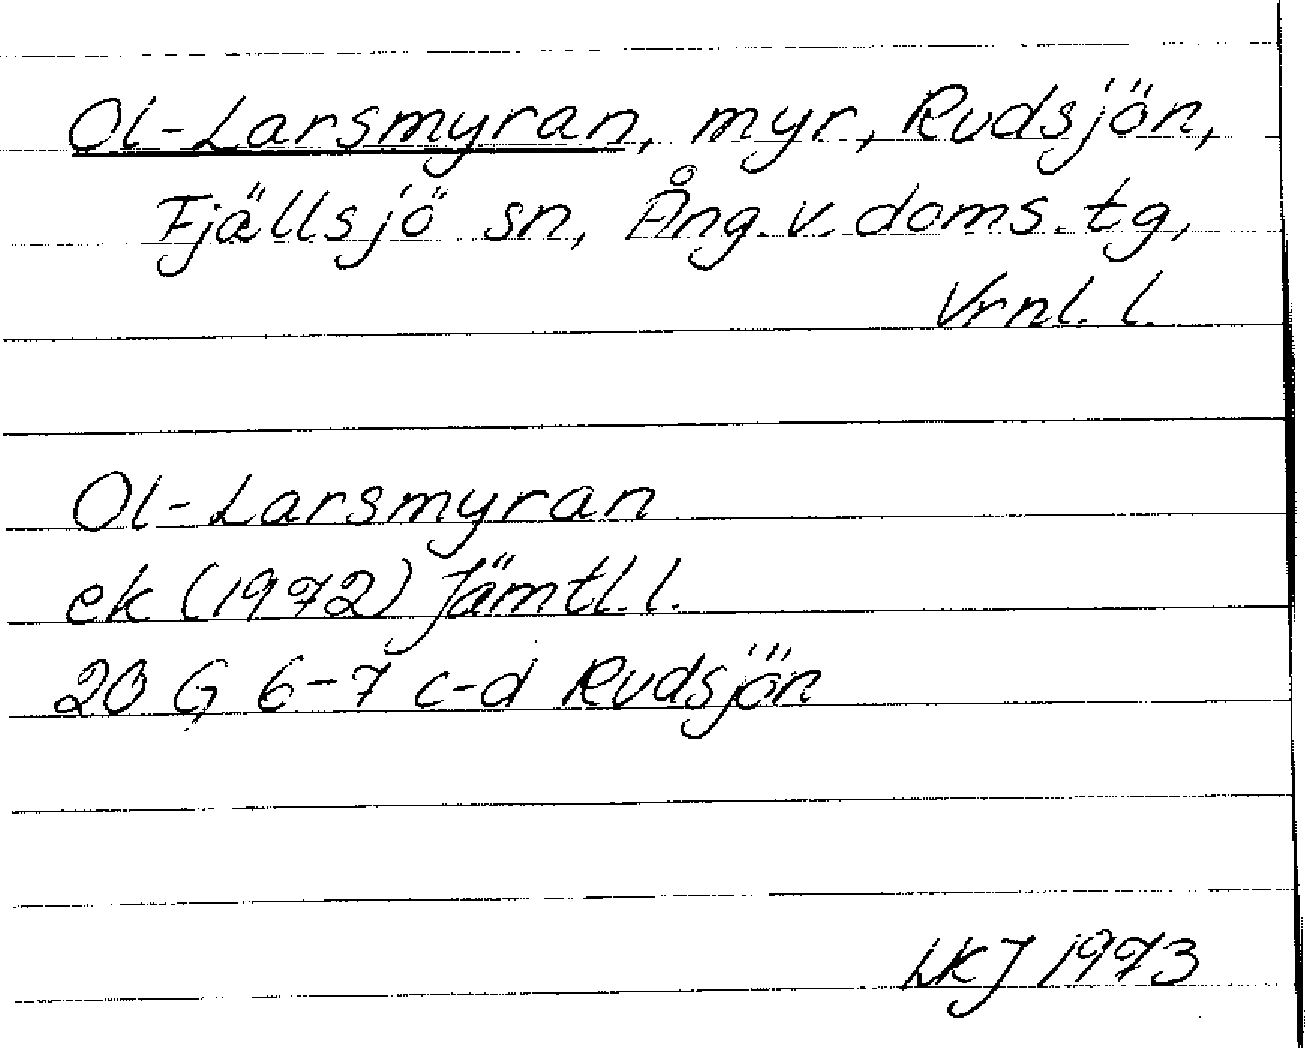 Ol-Larsmyran, myr, Rudsjön,
Fjällsjö sn, Ång. v. doms. tg,
Vrnl. l.
Ol-Larsmyran
ek (1972) Jämtl. l.
20 G 6-7 c-d Rudsjön
LKJ 1973